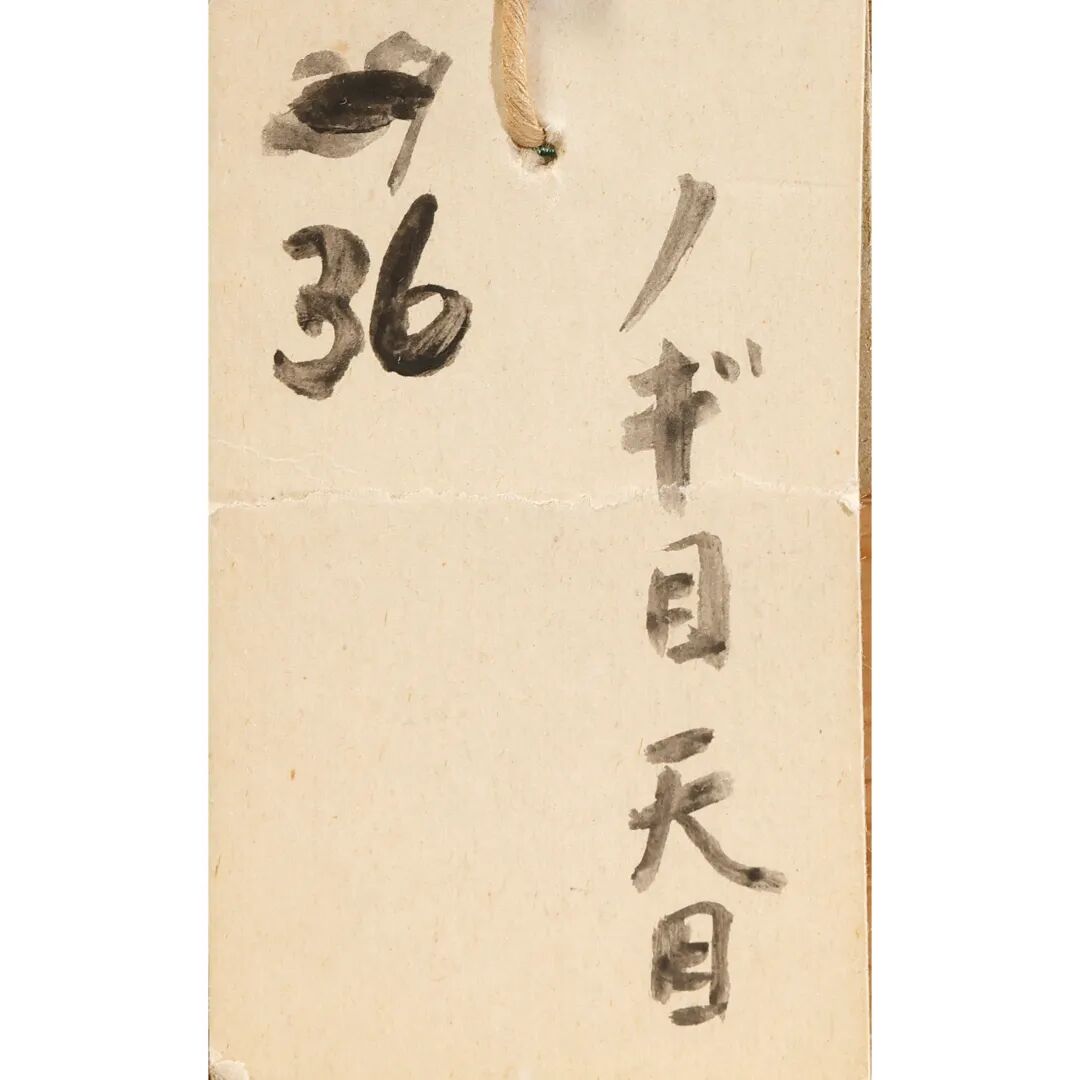 ノギ目天目
36